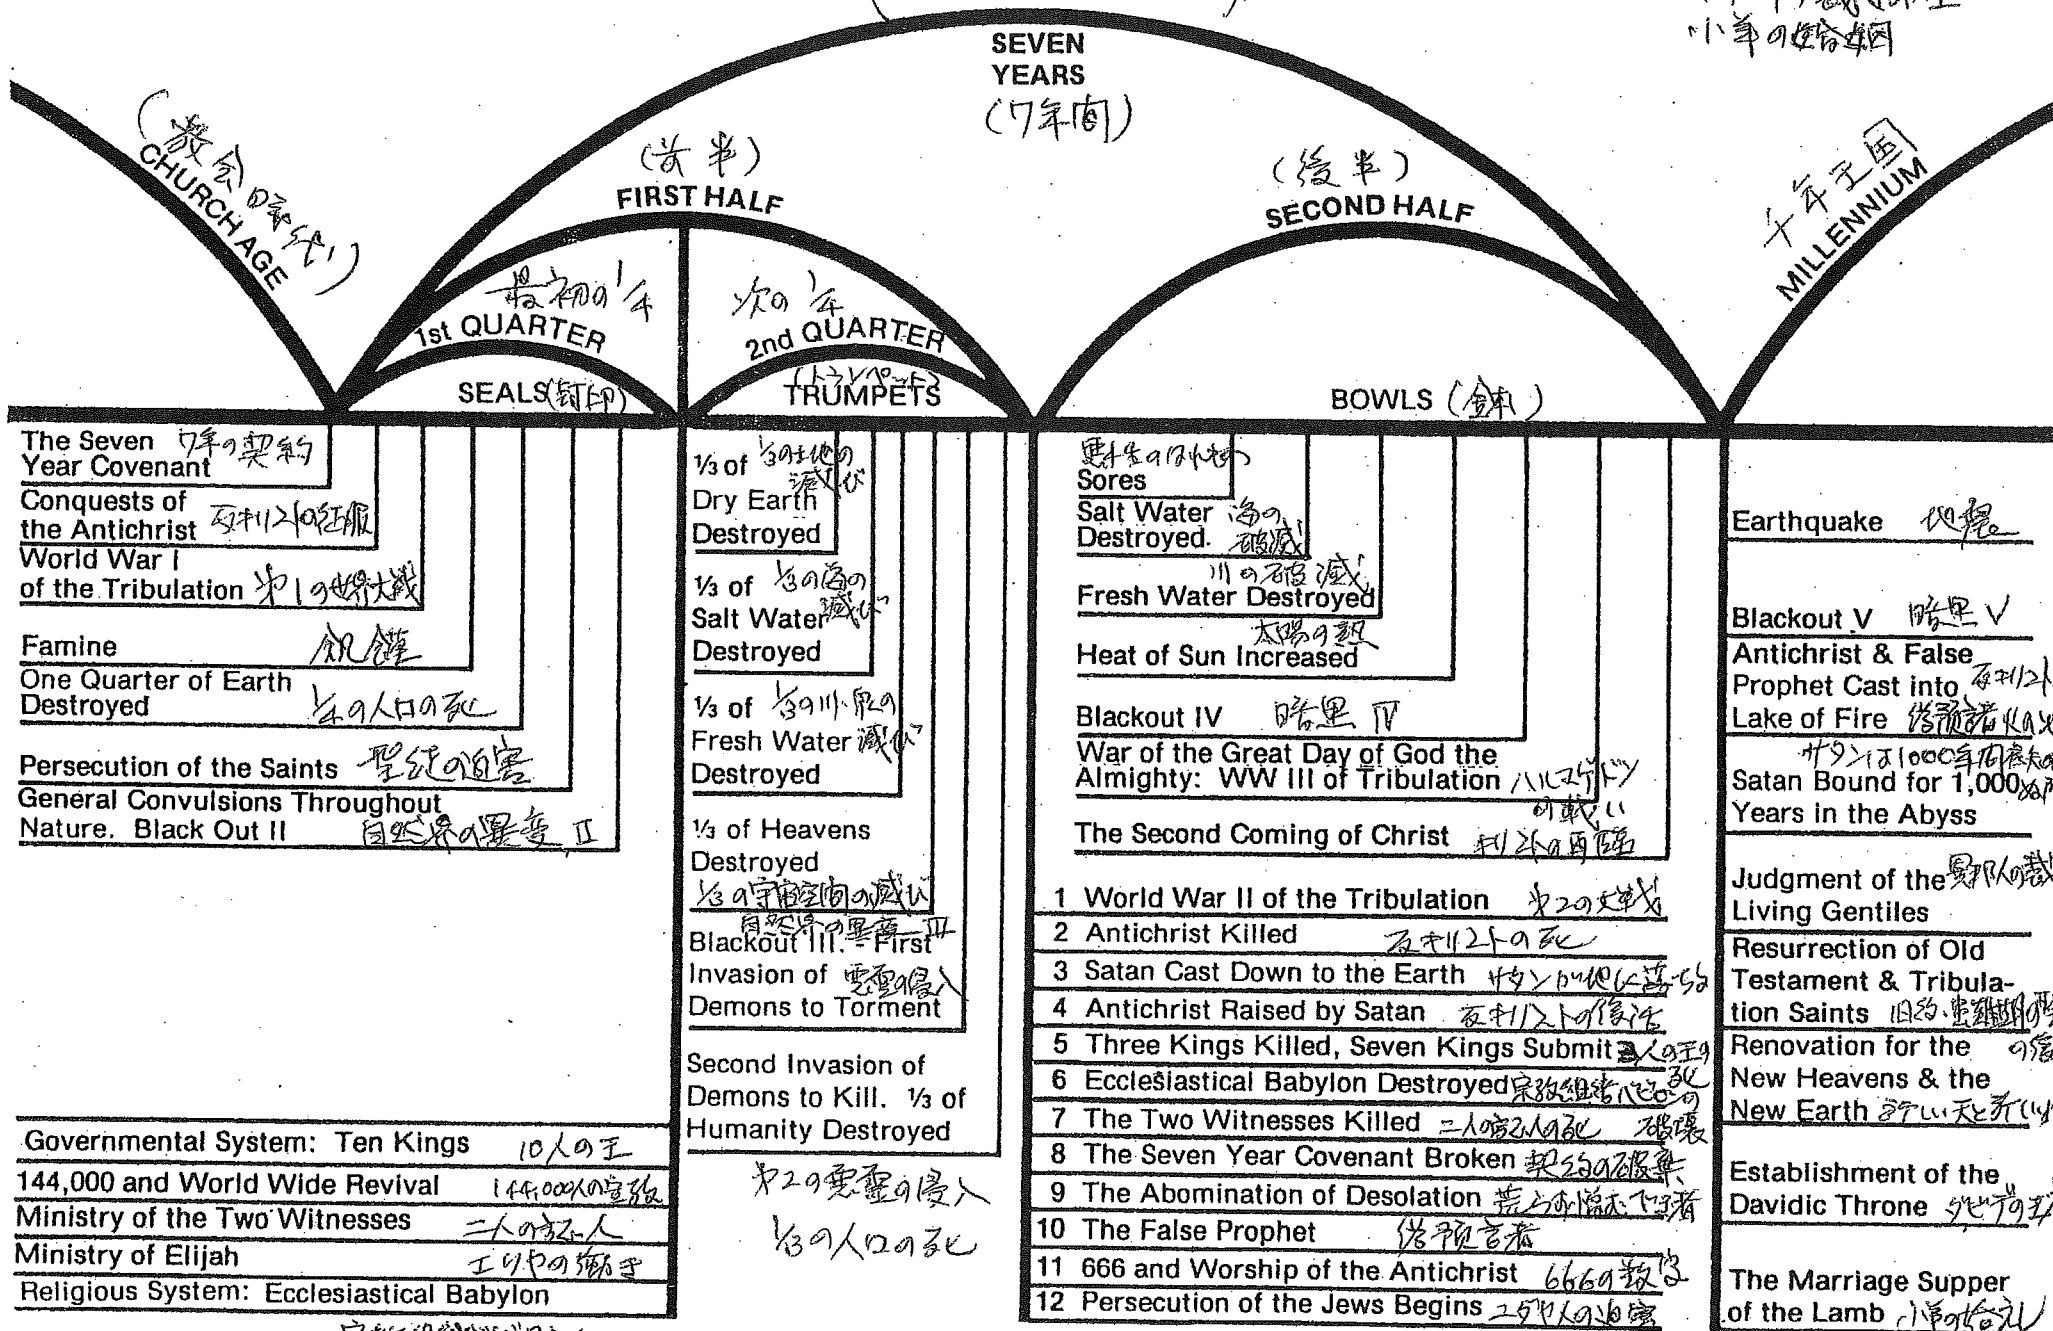 小羊の婚姻
SEVEN
YEARS
(7年間)
(教会時代)
CHURCH AGE
(前半)
FIRST HALF
(後半)
SECOND HALF
千年王国
MILLENNIUM
最初の1/4
1st QUARTER
次の1/4
2nd QUARTER
SEALS (封印)
(トランペット)
TRUMPETS
BOWLS (鉢)
The Seven 7年の契約
Year Covenant
Conquests of
the Antichrist 反キリストの征服
World War I
of the Tribulation 第1の世界大戦
Famine 飢饉
One Quarter of Earth
Destroyed 1/4の人口の死
Persecution of the Saints 聖徒の迫害
General Convulsions Throughout
Nature. Black Out II 自然界の異変 II
Governmental System: Ten Kings 10人の王
144,000 and World Wide Revival 144,000人の宣教
Ministry of the Two Witnesses 二人の証人
Ministry of Elijah エリヤの働き
Religious System: Ecclesiastical Babylon
⅓ of 1/3の土地の
滅び
Dry Earth
Destroyed
⅓ of 1/3の海の
Salt Water 滅び
Destroyed
⅓ of 1/3の川・泉の
Fresh Water 滅び
Destroyed
⅓ of Heavens
Destroyed
1/3の宇宙空間の滅び
自然界の異変 III
Blackout III. First
Invasion of 悪霊の侵入
Demons to Torment
Second Invasion of
Demons to Kill. ⅓ of
Humanity Destroyed
第2の悪霊の侵入
1/3の人口の死
悪性のはれもの
Sores
Salt Water 海の
Destroyed. 破滅
川の破滅
Fresh Water Destroyed
太陽の熱
Heat of Sun Increased
Blackout IV 暗黒 IV
War of the Great Day of God the
Almighty: WW III of Tribulation ハルマゲドン
の戦い
The Second Coming of Christ キリストの再臨
1 World War II of the Tribulation 第2の大戦
2 Antichrist Killed 反キリストの死
3 Satan Cast Down to the Earth サタンが地に落ちる
4 Antichrist Raised by Satan 反キリストの復活
5 Three Kings Killed, Seven Kings Submit 3人の王の
死
6 Ecclesiastical Babylon Destroyed 宗教組織バビロンの
破壊
7 The Two Witnesses Killed 二人の証人の死
8 The Seven Year Covenant Broken 契約の破棄
9 The Abomination of Desolation 荒らす憎むべき者
10 The False Prophet 偽預言者
11 666 and Worship of the Antichrist 666の数字
12 Persecution of the Jews Begins ユダヤ人の迫害
Earthquake 地震
Blackout V 暗黒 V
Antichrist & False
Prophet Cast into 反キリスト
Lake of Fire 偽預言者火の
サタンは1000年間底知
Satan Bound for 1,000
Years in the Abyss
Judgment of the 異邦人の裁
Living Gentiles
Resurrection of Old
Testament & Tribula-
tion Saints 旧約・患難期の
Renovation for the の復
New Heavens & the
New Earth 新しい天と新しい
Establishment of the
Davidic Throne ダビデの王
The Marriage Supper
of the Lamb 小羊の婚礼